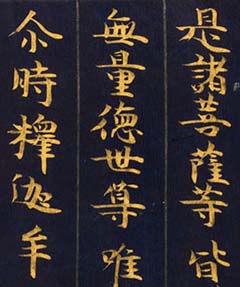 是諸菩薩等皆
無量徳世尊唯
尒時釋迦牟